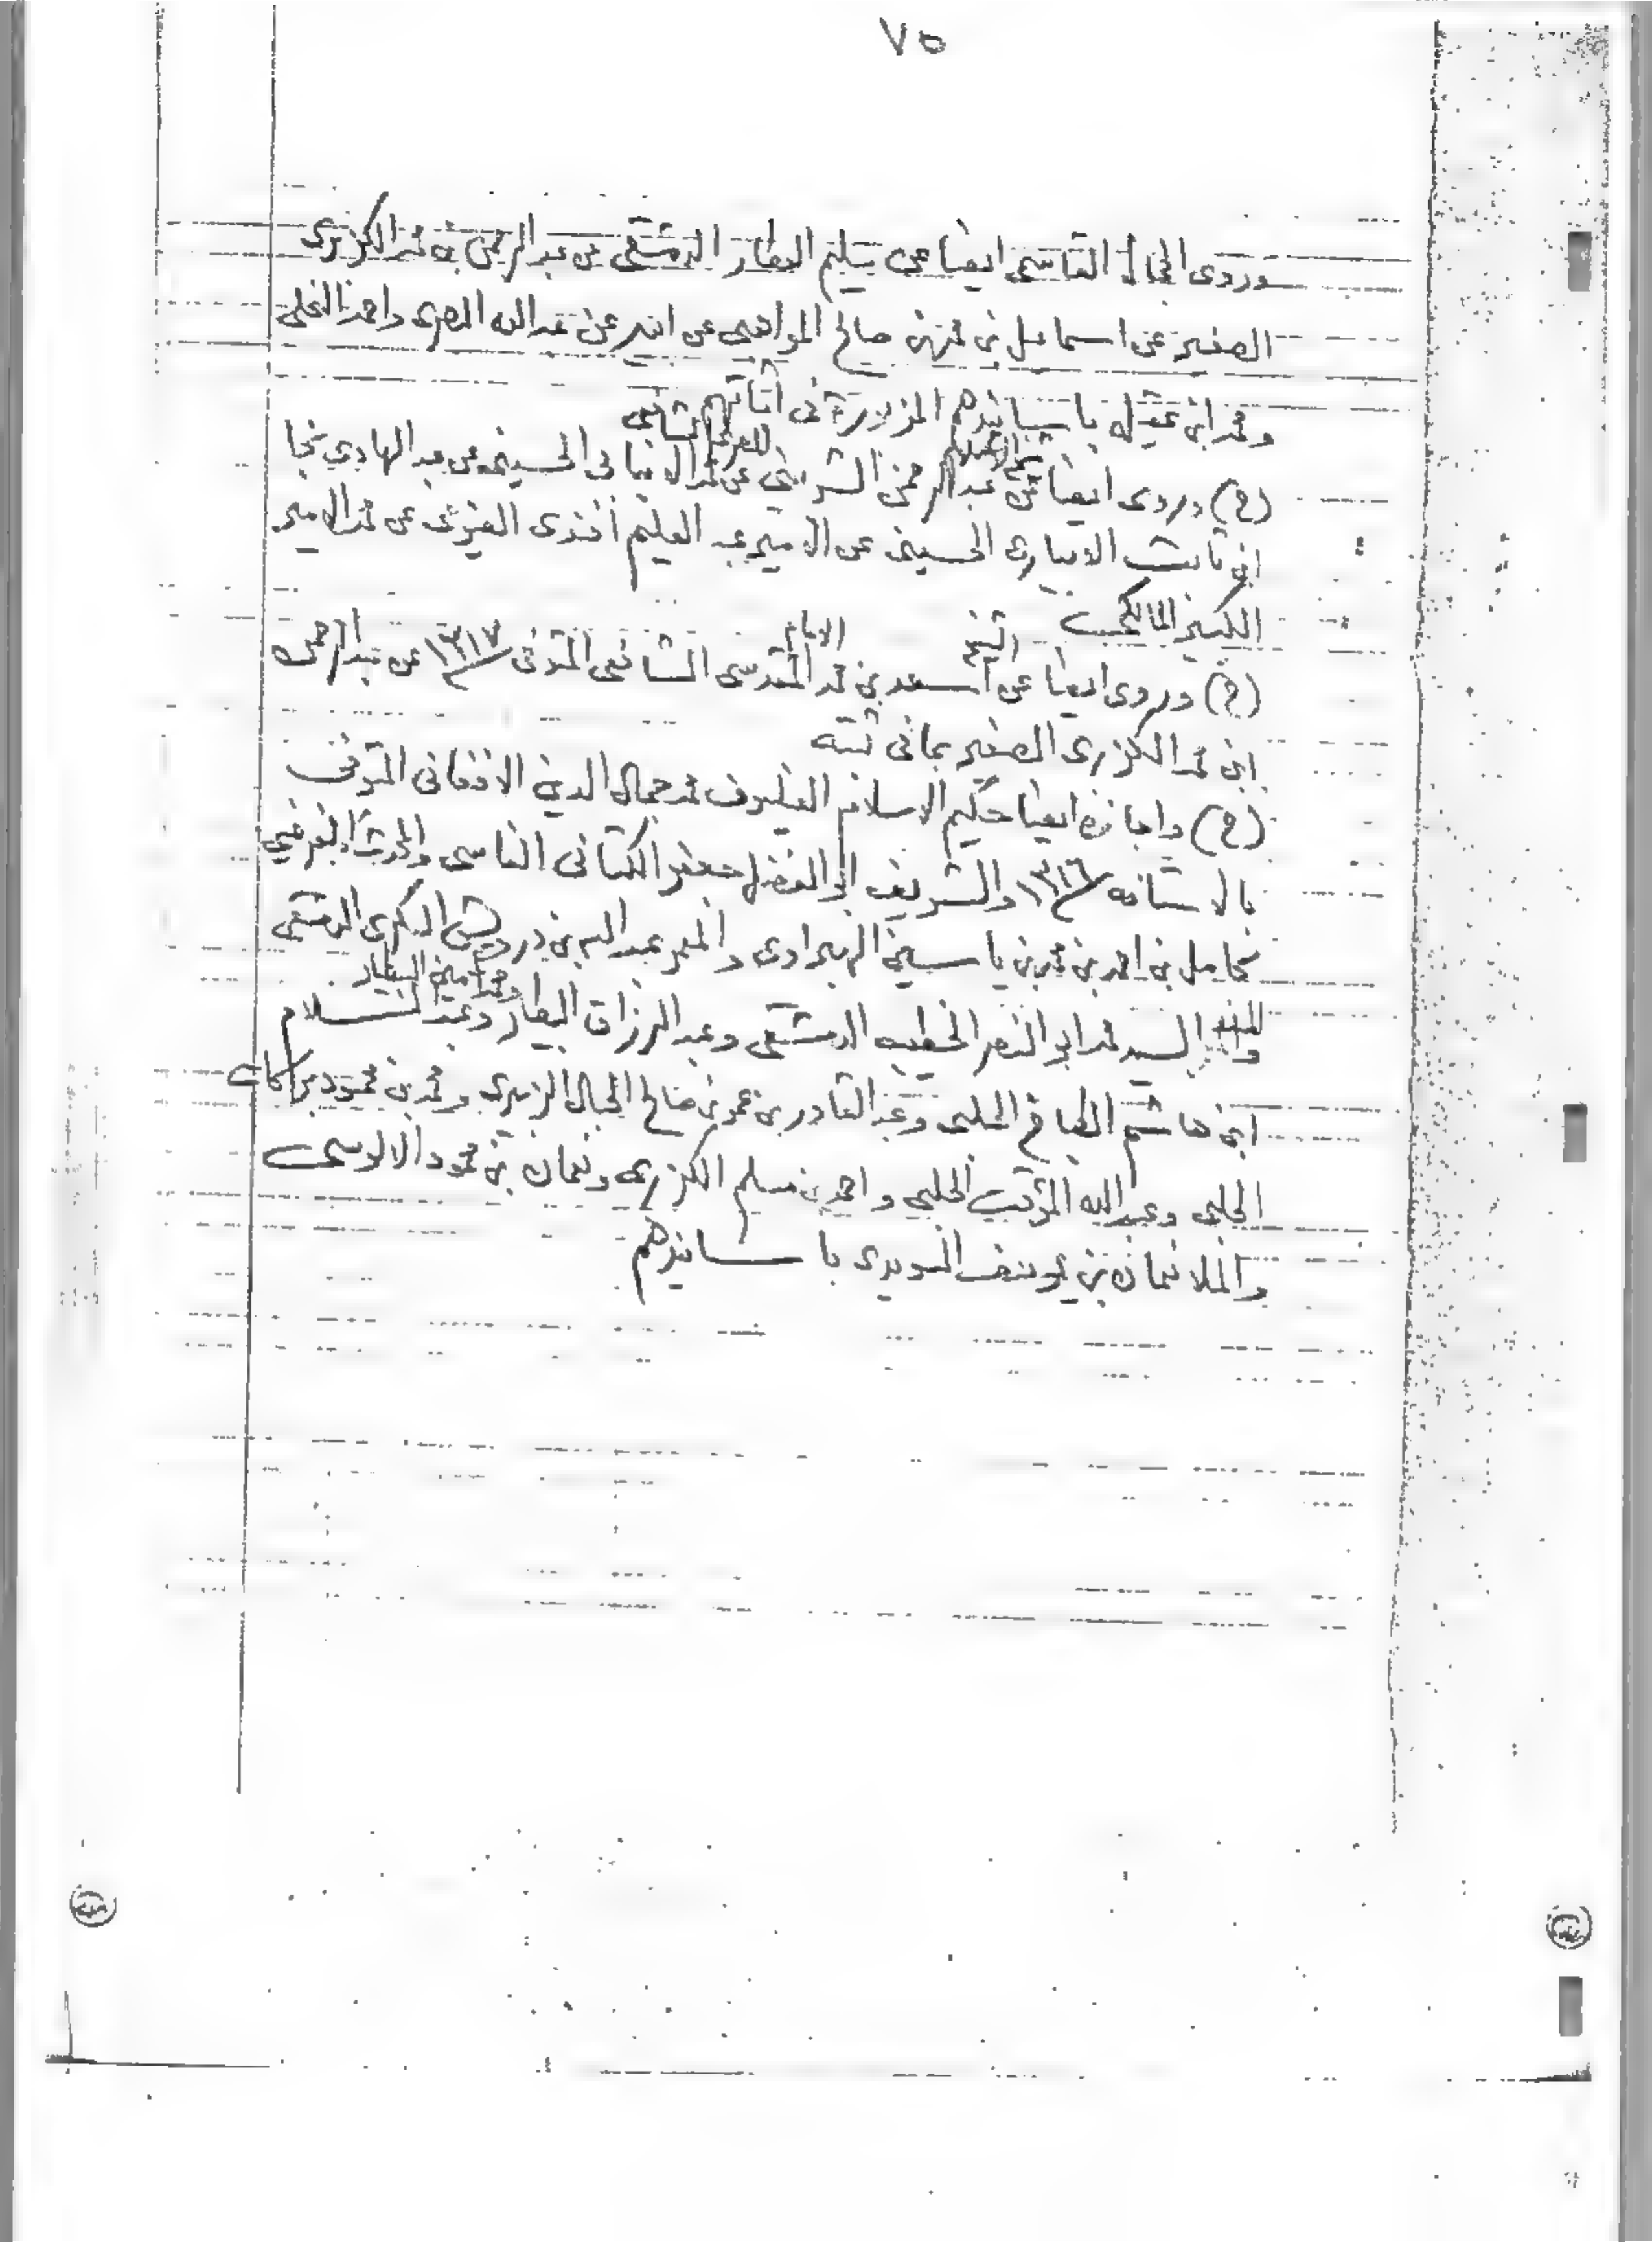 ٧٥
وروى الجمال القاسمي ايضا عن سليم العطار الدمشقي عن عبد الرحمن بن محمد الكزبري
الصغير عن اسماعيل بن محمد بن صالح المواهبي عن ابيه عن عبد الله البصري واحمد النخلي
ومحمد ابن عقيلة باسانيدهم المذكورة في اثباتهم
(ح) وروى ايضا عن عبد الرحمن الشربيني عن محمد الحسيني عن عبد الهادي نجا
ابن الابياري الحسيني عن الامير عبد العليم افندي الفيومي عن محمد الامير
الكبير المالكي
الشيخ الامام
(ح) وروى ايضا عن اسعد بن محمد المقدسي الشافعي المتوفى ١٣١٧ عن عبد الرحمن
ابن محمد الكزبري الصغير بما في ثبته
(ح) واجازه ايضا حكيم الاسلام الفيلسوف محمد جمال الدين الافغاني المتوفى
بالاستانه ١٣١٦ والشريف ابو الفضل جعفر الكتاني الفاسي والمحدث
كامل بن احمد بن محمد بن ياسين الهبراوي والمعمر عبد الله بن درويش السكري الدمشقي
ومحمد امين البيطار
السيد محمد ابو النصر الخطيب الدمشقي وعبد الرزاق البيطار وعبد السلام
ابن هاشم الطباخ الحلبي وعبد القادر بن عمر بن صالح الحبال الزبيري ومحمد بن محمود بركات
الحلبي وعبد الله المؤقت الحلبي واحمد بن مسلم الكزبري ونعمان بن محمود الالوسي
والملا نعمان بن يوسف السويدي باسانيدهم